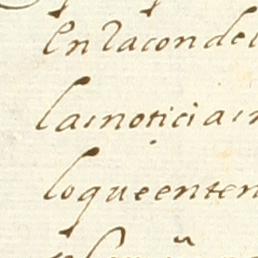 En la con de
las noticias
lo que enten